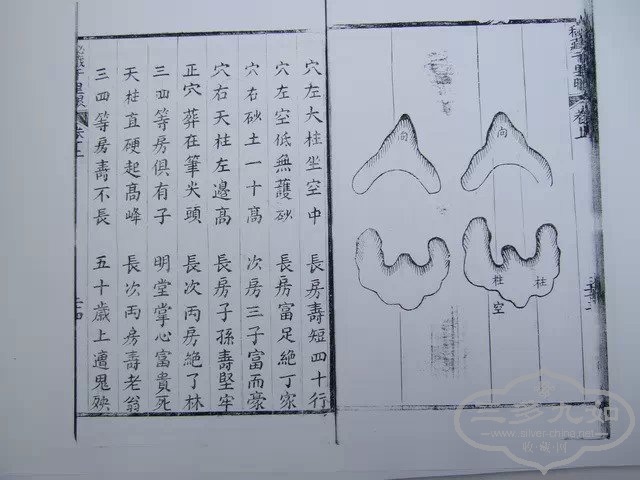 向
向
柱
柱
空
穴左大柱坐空中 長房壽短四十行
穴左空低無護砂 長房富足絕丁家
穴右砂土一十高 次房三子富而豪
穴右天柱左邊高 長房子孫壽堅牢
正穴葬在筆尖頭 長次丙房絕了林
三四等房俱有子 明堂掌心富貴死
天柱直硬起高峰 長次丙房壽老翁
三四等房壽不長 五十歲上遭鬼殃
www.silver-china.net